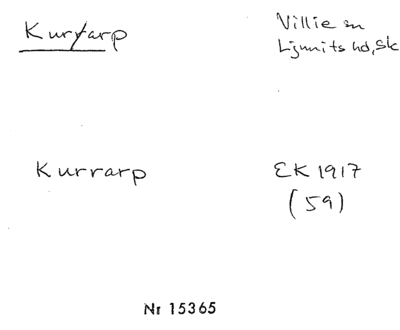 Kurrarp Villie sn
Ljunits hd, Sk
Kurrarp EK 1917
(59)
Nr 15365